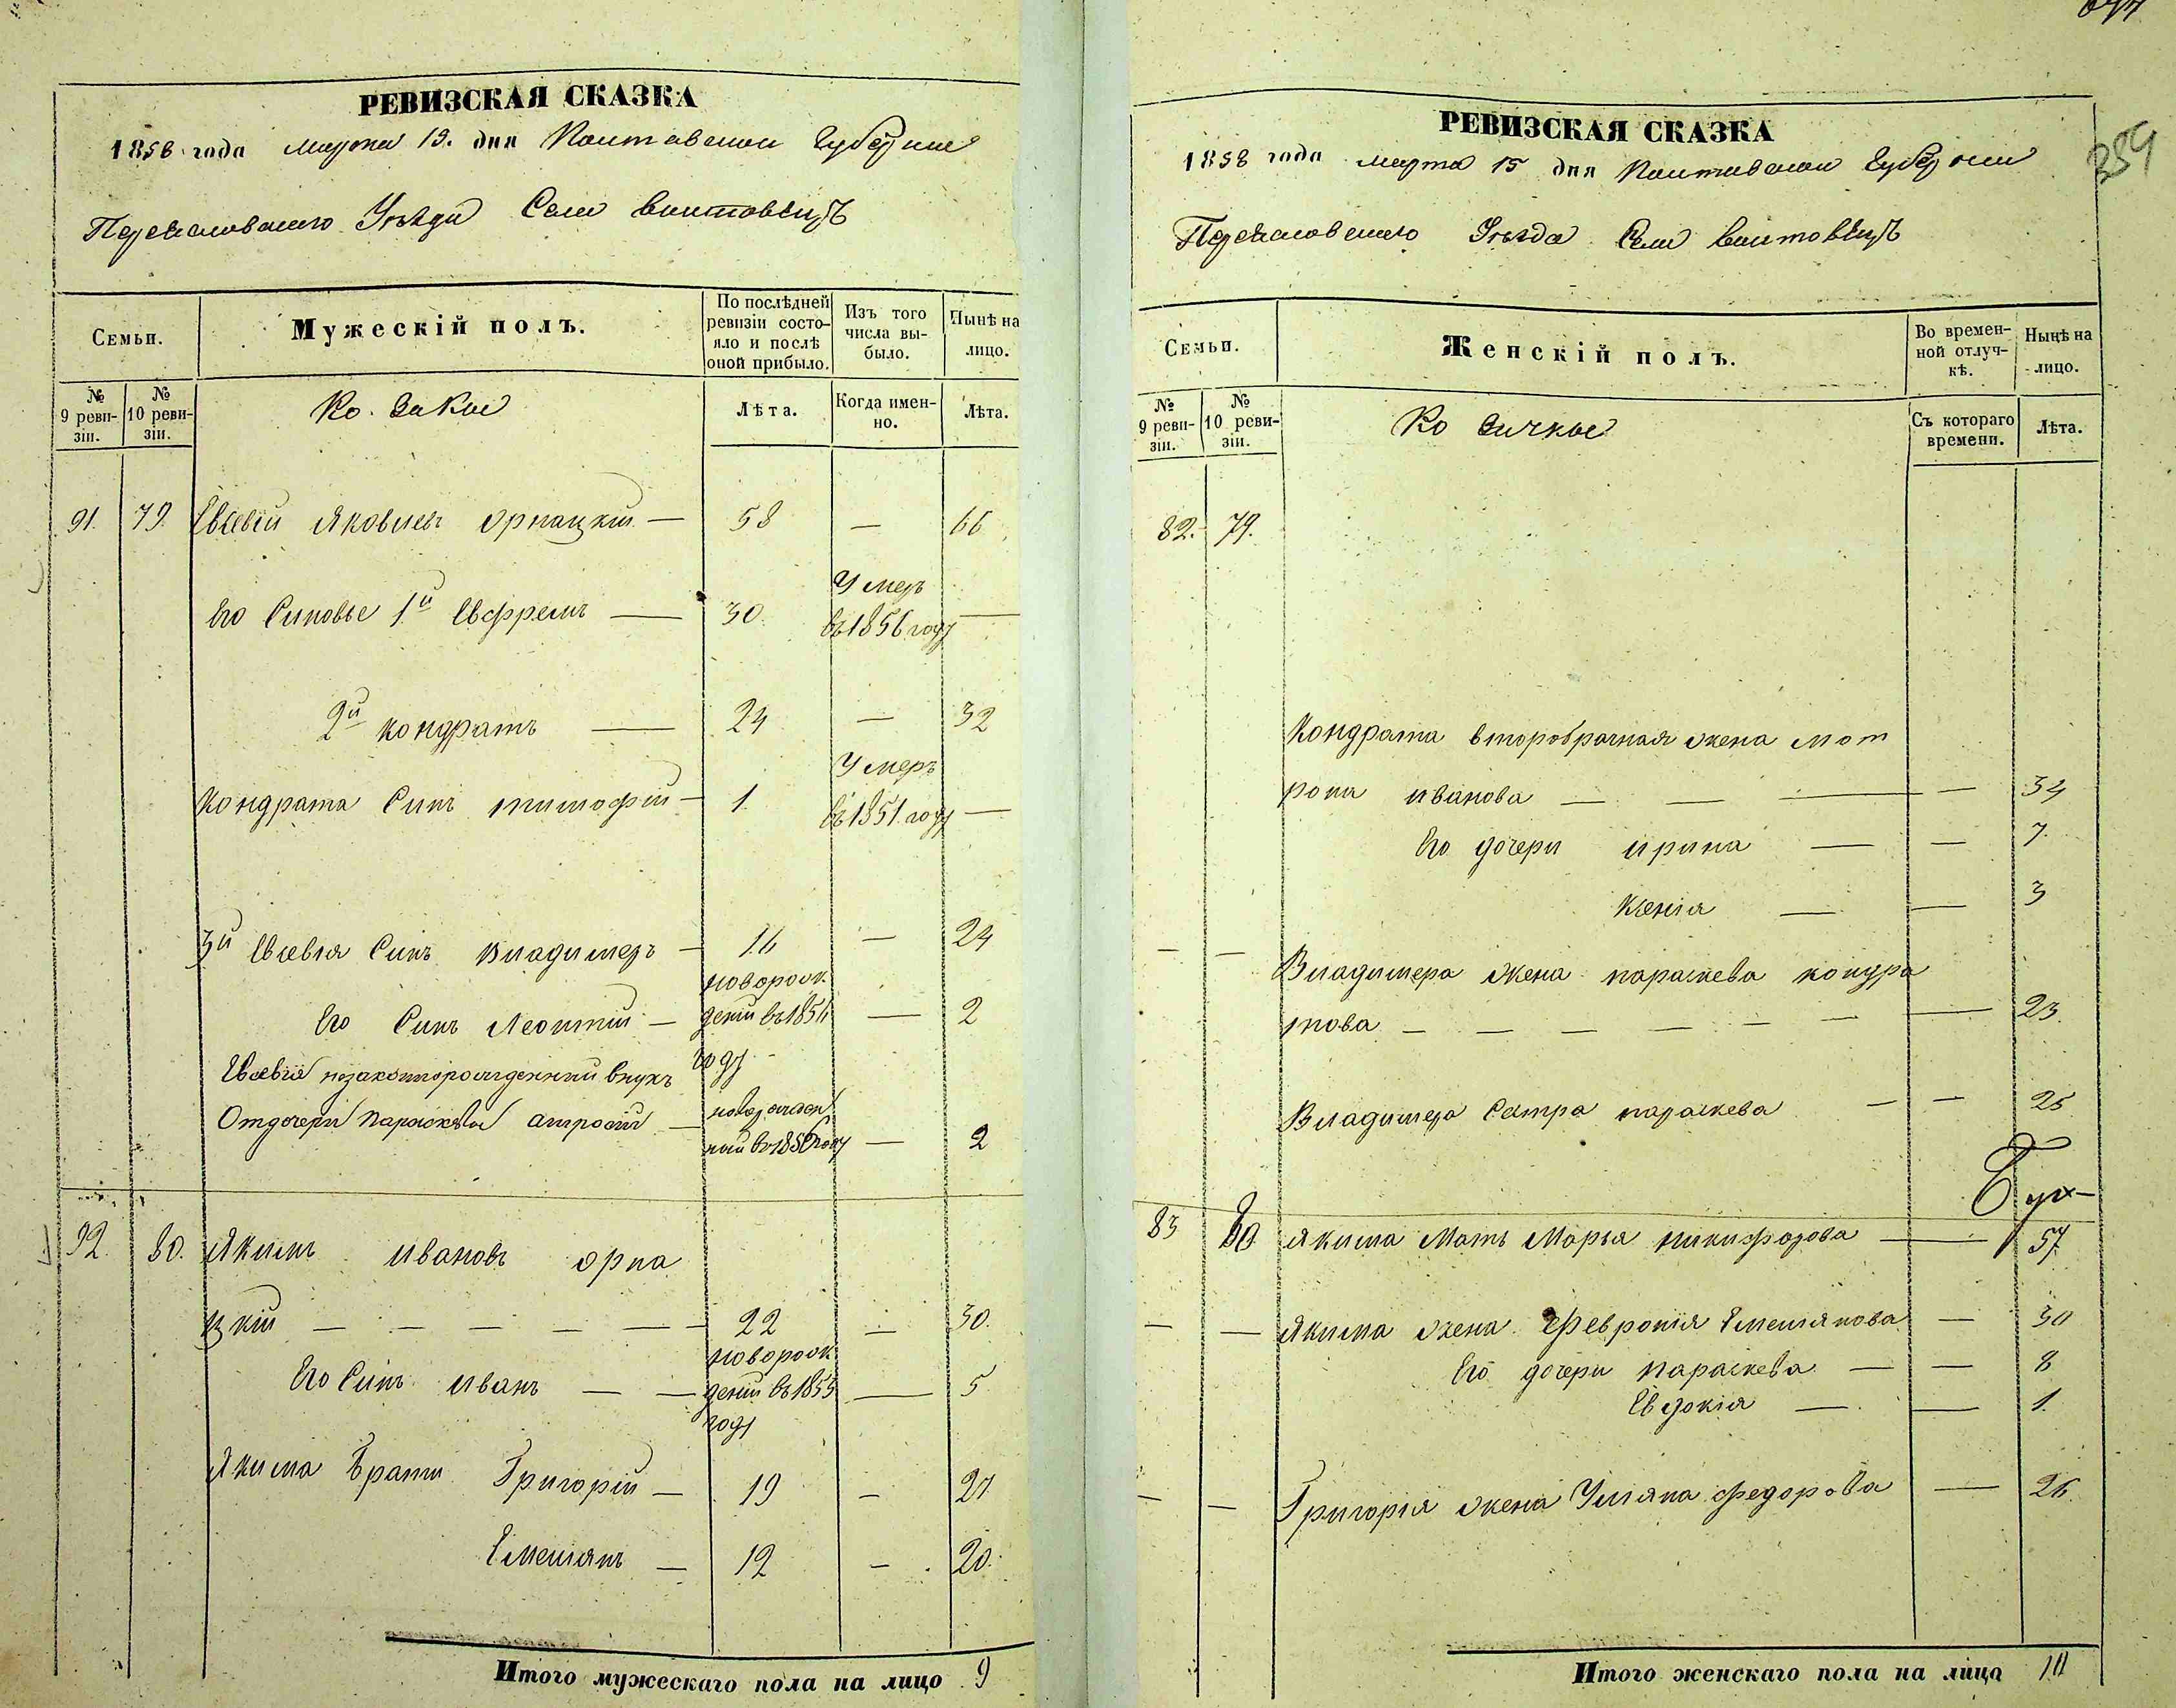 РЕВИЗСКАЯ СКАЗКА
1858 года марта 15. дня Полтавской Губернии
Переяславского Уѣзда Села Войтовецъ
Семьи.
Мужескій полъ.
По послѣдней ревизіи состояло и послѣ оной прибыло.
Изъ того числа выбыло.
Нынѣ на лицо.
№ 9 ревизіи.
№ 10 ревизіи.
Козаки
Лѣта.
Когда именно.
Лѣта.
91. 79. Евсевій Яковлевъ Орпацкій — 58 — 66
Его Синовье 1й Евфремъ — 30. Умеръ въ 1856 году —
2й Кондратъ — 24 — 32
Кондрата Синъ Тимофій — 1. Умеръ въ 1851. году —
3й Евсевія Синъ Владимеръ — 16 — 24
Его Синъ Леонтій — новорожденій въ 1856 году — 2
Евсевія незаконнорожденний внукъ
Отдочери Параскевы Амросій — новорожденный въ 1856 году — 2
92. 80. Якимъ Ивановъ Орпа
цкій — — — — — — 22 — 30.
Его Синъ Иванъ — — новорожденій въ 1853 году — 5
Якима Брати Григорій — 19 — 27
Емеліянъ — 12 — 20.
Итого мужескаго пола на лицо 9
254
РЕВИЗСКАЯ СКАЗКА
1858 года марта 15 дня Полтавской Губернии
Переяславского Уѣзда Села Войтовецъ
Семьи.
Женскій полъ.
Во временной отлучкѣ.
Нынѣ на лицо.
№ 9 ревизіи.
№ 10 ревизіи.
Козачки
Съ котораго времени.
Лѣта.
82. 79.
Кондрата второбрачная жена Мот
рона Иванова — — — — 34
Его дочери Ирина — — 7.
Ксенія — — 3
— — Владимера жена Параскева Кондра
това — — — — — — — 23.
Владимера Сестра Параскева — — 25
83 80 Якима Мать Марья Никифорова — 57.
— — Якима жена Февронія Емеліянова — 30
Его дочери Параскева — — 8
Евдокія — — 1.
— — Григорія жена Уліяна Федорова — 26.
Итого женскаго пола на лицо 10